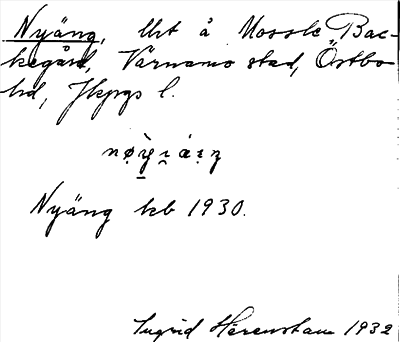 Nyäng, Uet å Mossle, Bac-
kegård, Värnamo stad, Östbo
hd, Jkpgs l.
Nyäng kb 1930.
Ingrid Hérenstam 1932